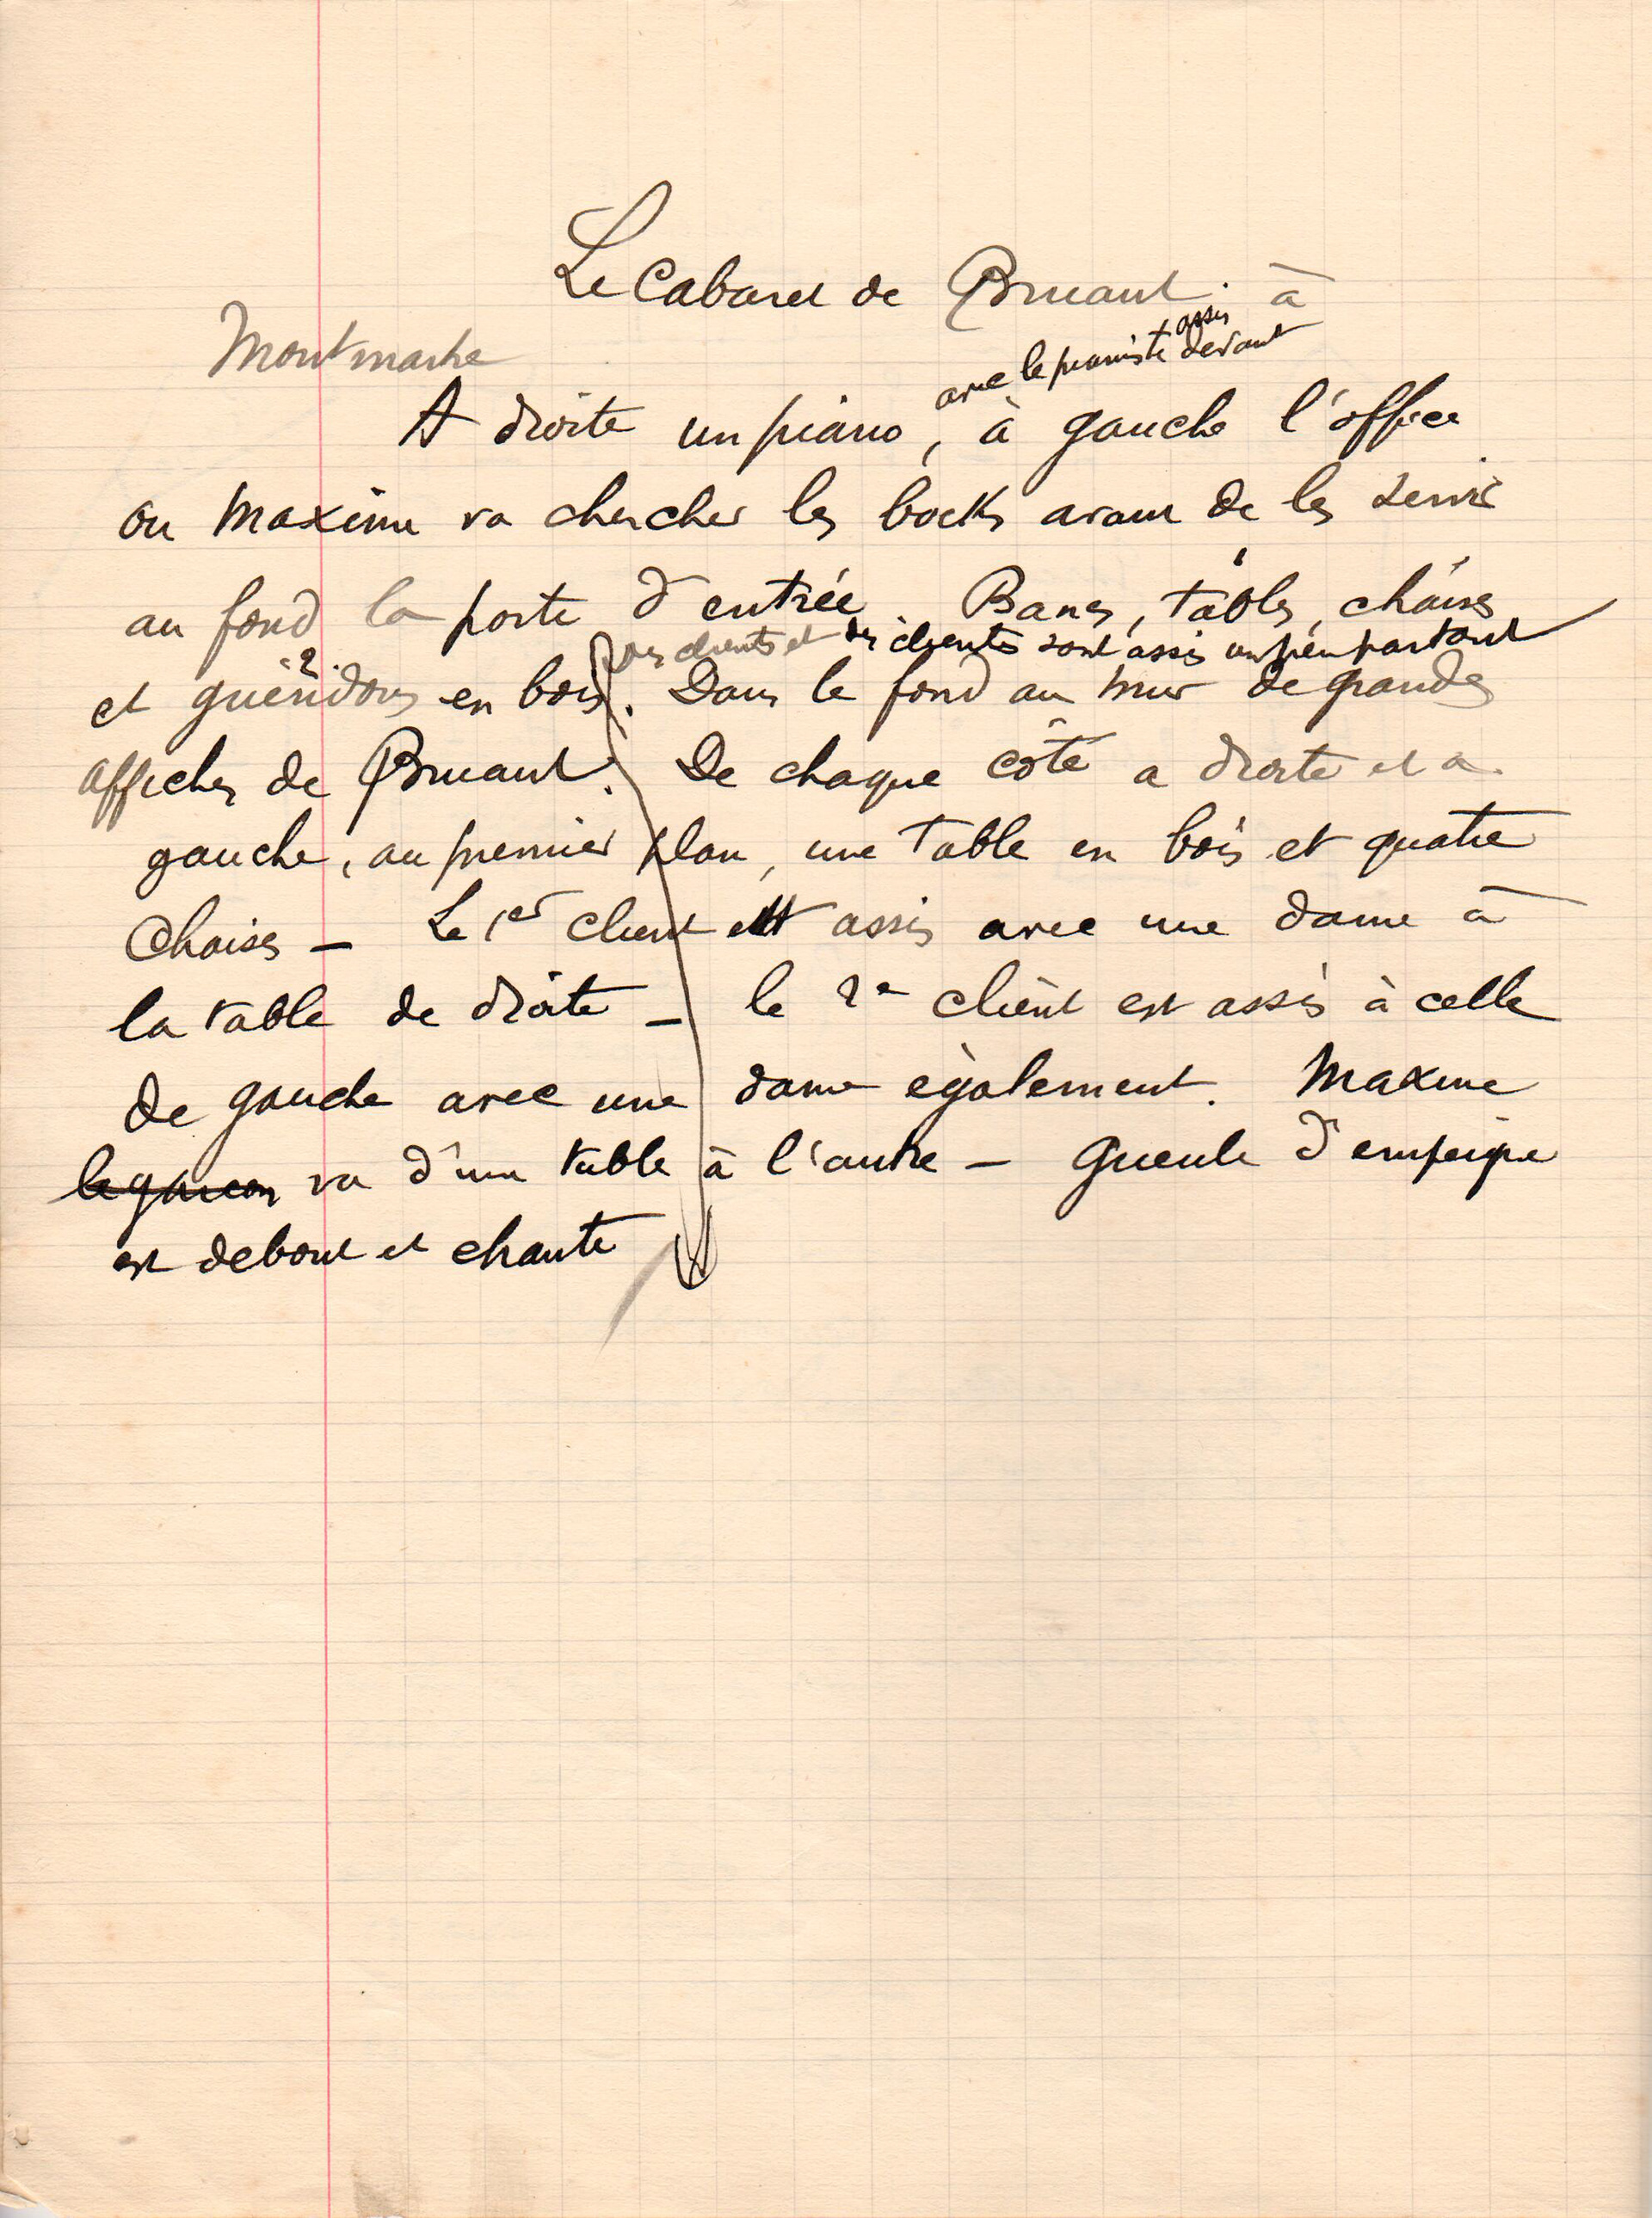 Le Cabaret de Bruant. à
Montmartre
avec le pianiste assis devant
A droite un piano, à gauche l'office
ou Maxime va chercher les bocks avant de les servir
au fond la porte d'entrée. Bancs, tables, chaises
des clients et des clientes sont assis un peu partout
et guéridons en bois. Dans le fond au mur de grandes
affiches de Bruant. De chaque côté a droite et a
gauche, au premier plan, une table en bois et quatre
Chaises – Le 1er client est assis avec une dame à
la table de droite – le 2e client est assis à celle
de gauche avec une dame également. Maxime
le garcon va d'une table à l'autre – Gueule d'empeigne
est debout et chante